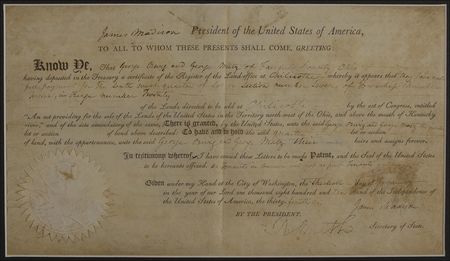 James Madison President of the United States of America,
TO ALL TO WHOM THESE PRESENTS SHALL COME, GREETING:
Know Ye, That George Craig and George Metz of Fairfield County Ohio
having deposited in the Treasury a certificate of the Register of the Land office at Chillicothe whereby it appears that they have made
full payment for the quarter of section number of Township number
in Range number Twenty
of the Lands directed to be sold at Chillicothe by the act of Congress, entitled
"An act providing for the sale of the Lands of the United States in the territory north west of the Ohio, and above the mouth of Kentucky
river," and of the acts amendatory of the same, There is granted, by the United States, unto the said George Craig and George Metz the
lot or section of land above described: To have and to hold the said quarter lot or section
of land, with the appurtenances, unto the said George Craig and George Metz their heirs and assigns forever.
In testimony whereof, I have caused these Letters to be made Patent, and the Seal of the United States
to be hereunto affixed.
Given under my Hand at the City of Washington, the day of
in the year of our Lord one thousand eight hundred and and of the Independence of
the United States of America, the thirty
James Madison
BY THE PRESIDENT.
Secretary of State.